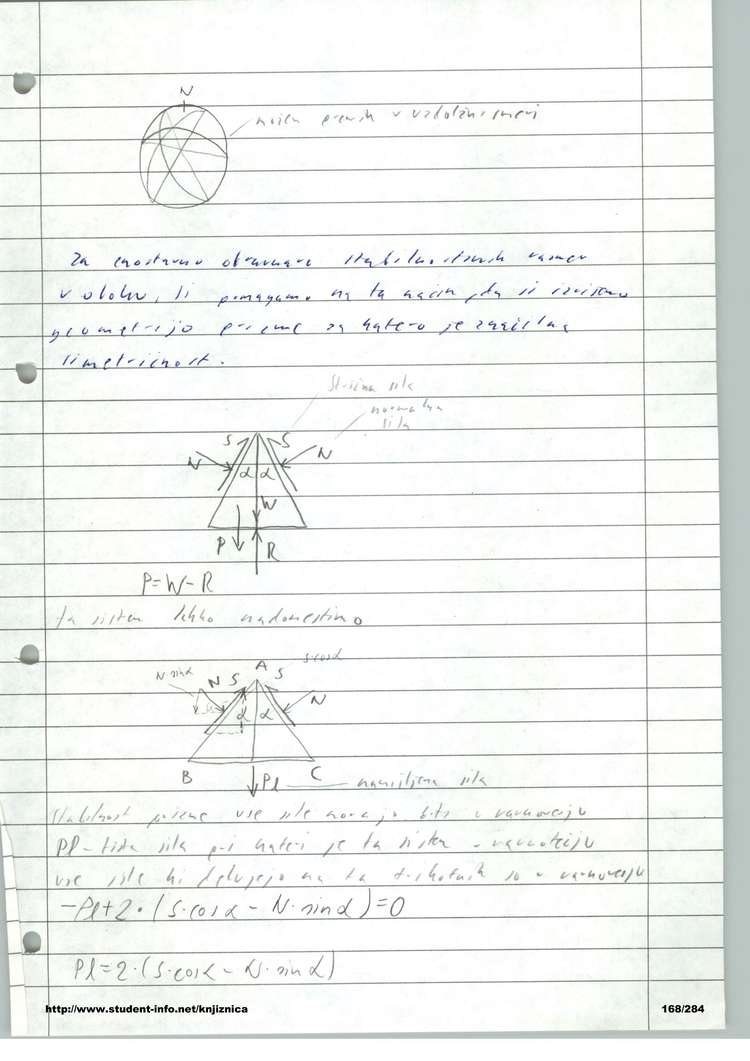 N
možen premik v vzdolžni smeri
Za enostavno obravnavo stabilnostnih razmer
v obloku, si pomagamo na ta način, da si izrišemo
geometrijo prizme za katero je značilna
simetričnost.
strižna sila
normalna
sila
S S
N N
α α
W
P R
P=W-R
ta sistem lahko nadomestimo
S·cosα
N·sinα N S A S
N
α α
B C
Pl nasiljena sila
Stabilnost prizme vse sile morajo biti v ravnovesju
Pl-tista sila pri kateri je ta sistem v ravnotežju
vse sile ki delujejo na ta trikotnik so v ravnovesju
-Pl+2·(S·cosα-N·sinα)=0
Pl=2·(S·cosα-N·sinα)
http://www.student-info.net/knjiznica 168/284